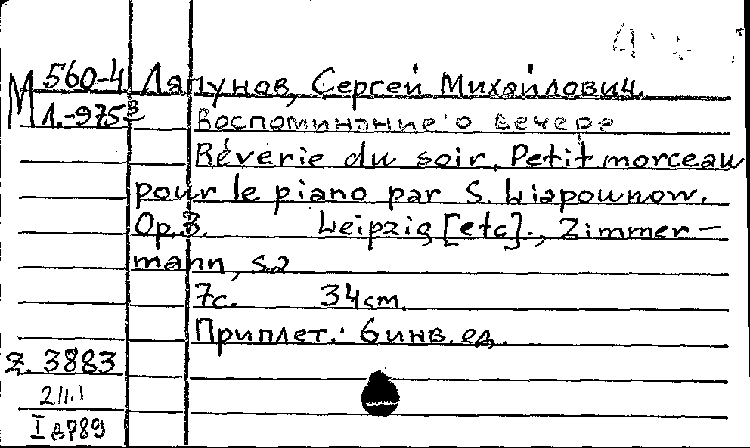 М 560-4 Ляпунов, Сергей Михайлович.
1.-975 Воспоминание о вечере
Rêverie du soir. Petit morceau
pour le piano par S. Liapounow.
Op. 3. Leipzig [etc]., Zimmer-
mann, s.a
7с. 34cm.
Приплет.: 6 инв. ед.
Z. 3883
2/II.1
I в789